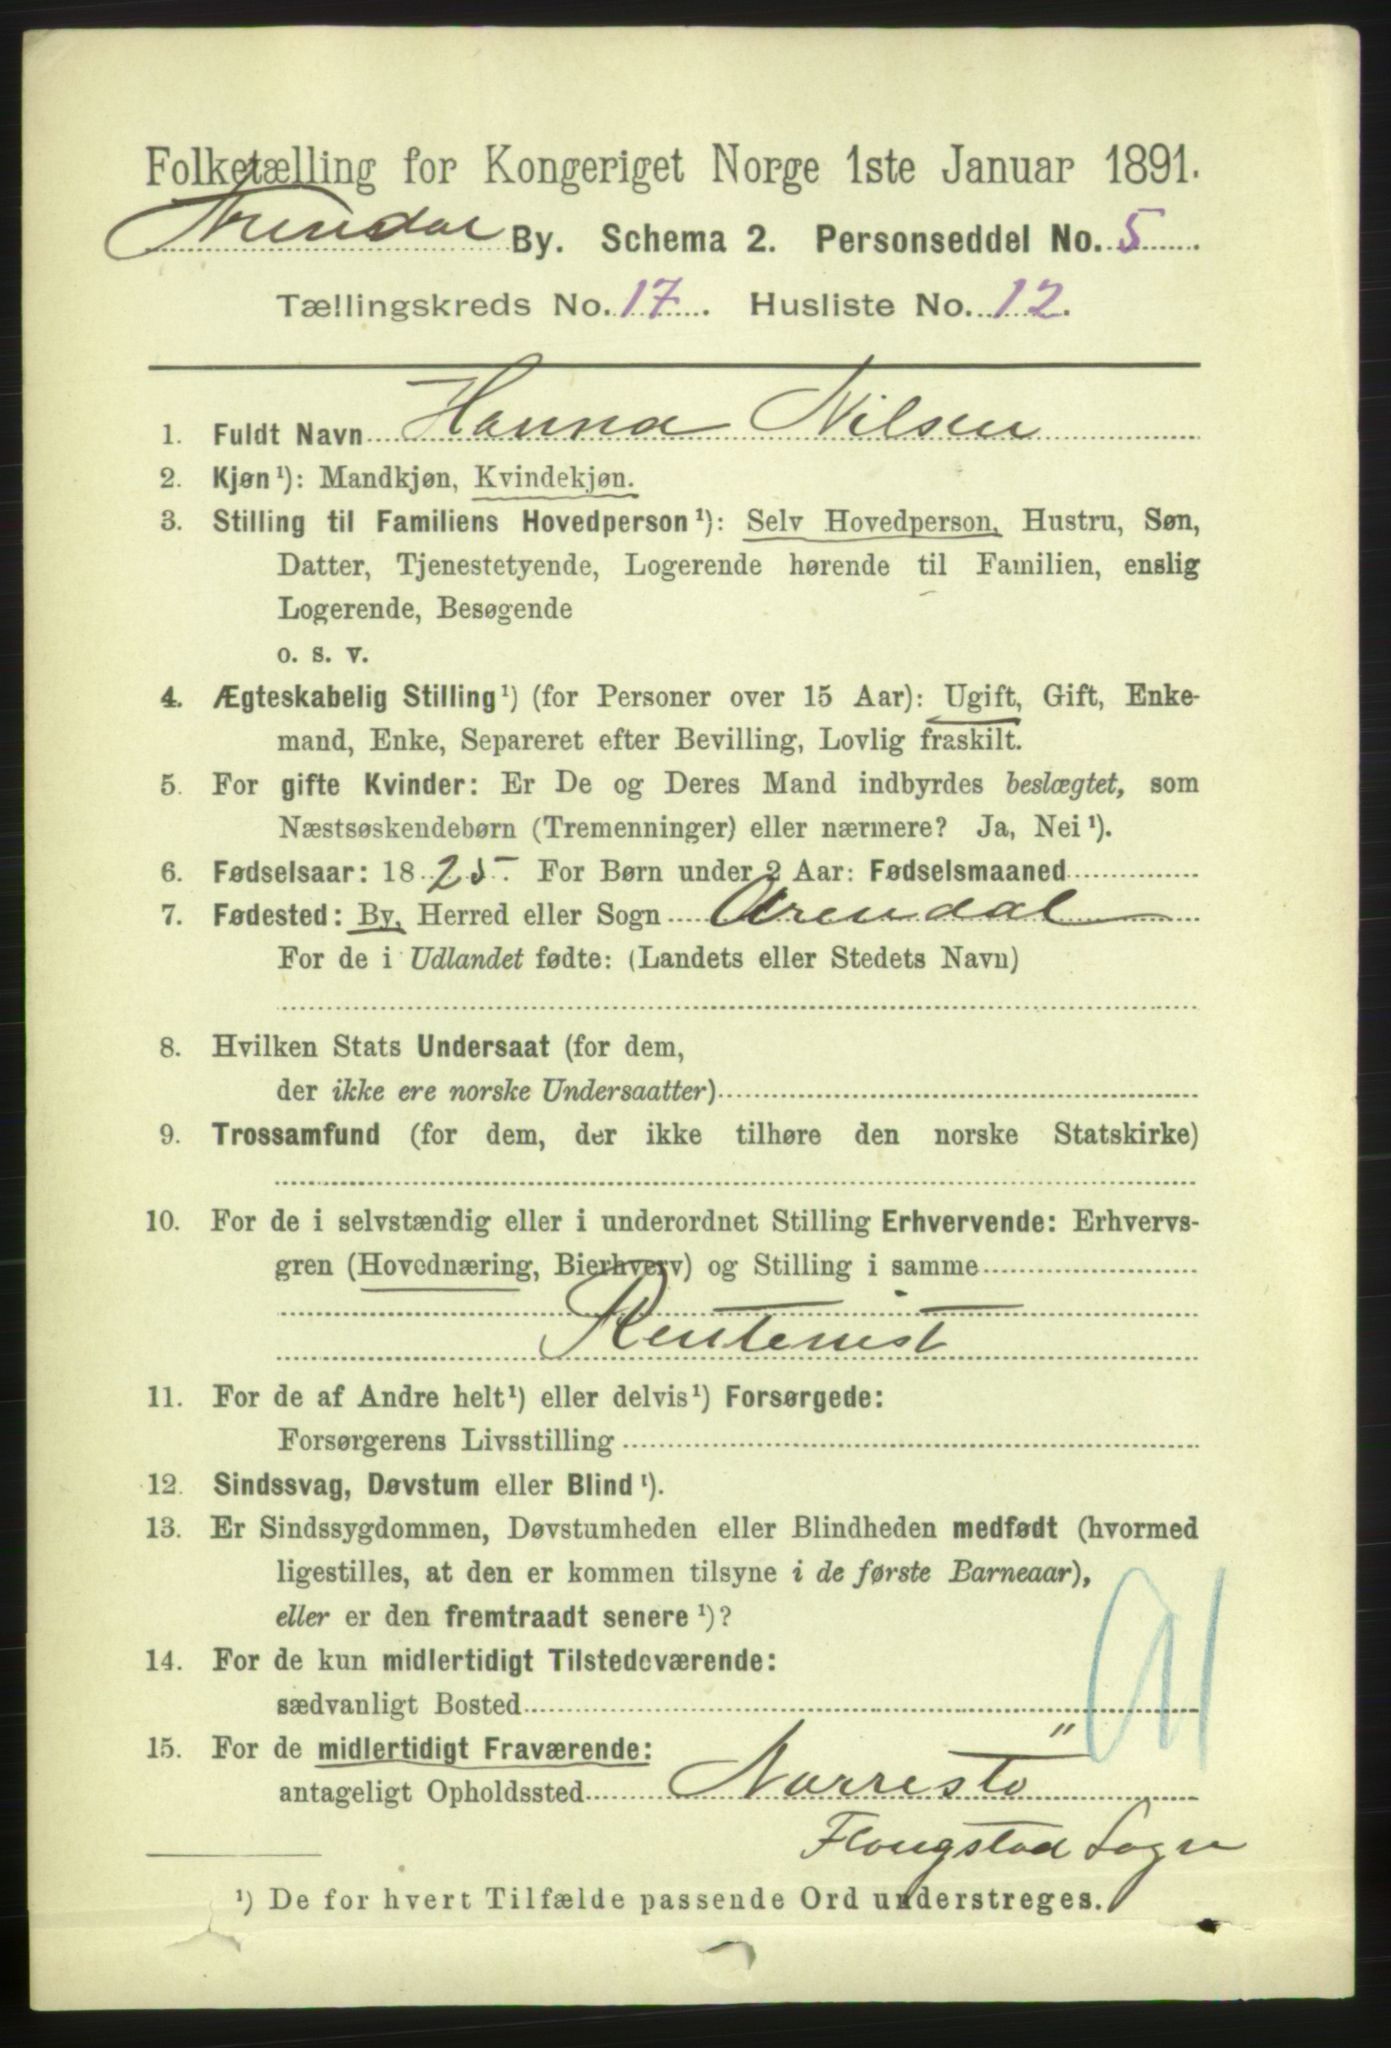 Folketælling for Kongeriget Norge 1ste Januar 1891.
Arendal By. Schema 2. Personseddel No. 5
Tællingskreds No. 17. Husliste No. 12.
1. Fuldt Navn Hanna Nilsen
2. Kjøn ¹): Mandkjøn, Kvindekjøn.
3. Stilling til Familiens Hovedperson ¹): Selv Hovedperson, Hustru, Søn,
Datter, Tjenestetyende, Logerende hørende til Familien, enslig
Logerende, Besøgende
o. s. v.
4. Ægteskabelig Stilling ¹) (for Personer over 15 Aar): Ugift, Gift, Enke-
mand, Enke, Separeret efter Bevilling, Lovlig fraskilt.
5. For gifte Kvinder: Er De og Deres Mand indbyrdes beslægtet, som
Næstsøskendebørn (Tremenninger) eller nærmere? Ja, Nei ¹).
6. Fødselsaar: 1825. For Børn under 2 Aar: Fødselsmaaned
7. Fødested: By, Herred eller Sogn Arendal
For de i Udlandet fødte: (Landets eller Stedets Navn)
8. Hvilken Stats Undersaat (for dem,
der ikke ere norske Undersaatter)
9. Trossamfund (for dem, der ikke tilhøre den norske Statskirke)
10. For de i selvstændig eller i underordnet Stilling Erhvervende: Erhvervs-
gren (Hovednæring, Bierhverv) og Stilling i samme
Rentenist
11. For de af Andre helt ¹) eller delvis ¹) Forsørgede:
Forsørgerens Livsstilling
12. Sindssvag, Døvstum eller Blind ¹).
13. Er Sindssygdommen, Døvstumheden eller Blindheden medfødt (hvormed
ligestilles, at den er kommen tilsyne i de første Barneaar),
eller er den fremtraadt senere ¹)?
14. For de kun midlertidigt Tilstedeværende:
sædvanligt Bosted
15. For de midlertidigt Fraværende:
antageligt Opholdssted Narrestö
Flougstad Sogn
¹) De for hvert Tilfælde passende Ord understreges.